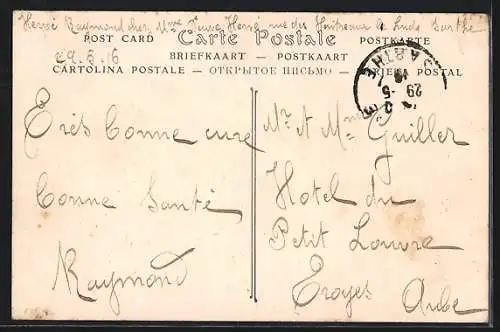 Hervé Raymond chez Mme Veuve Hervé rue des Huitreaux le Lude Sarthe
POST CARD Carte Postale POSTKARTE
29.5.16
BRIEFKAART — POSTKAART
CARTOLINA POSTALE — ОТКРЫТОЕ ПИСЬМО — POSTAL
SARTHE
29 -5
Très bonne cure
bonne santé
Raymond
Mr et Mme Guiller
Hotel du
Petit Louvre
Troyes Aube